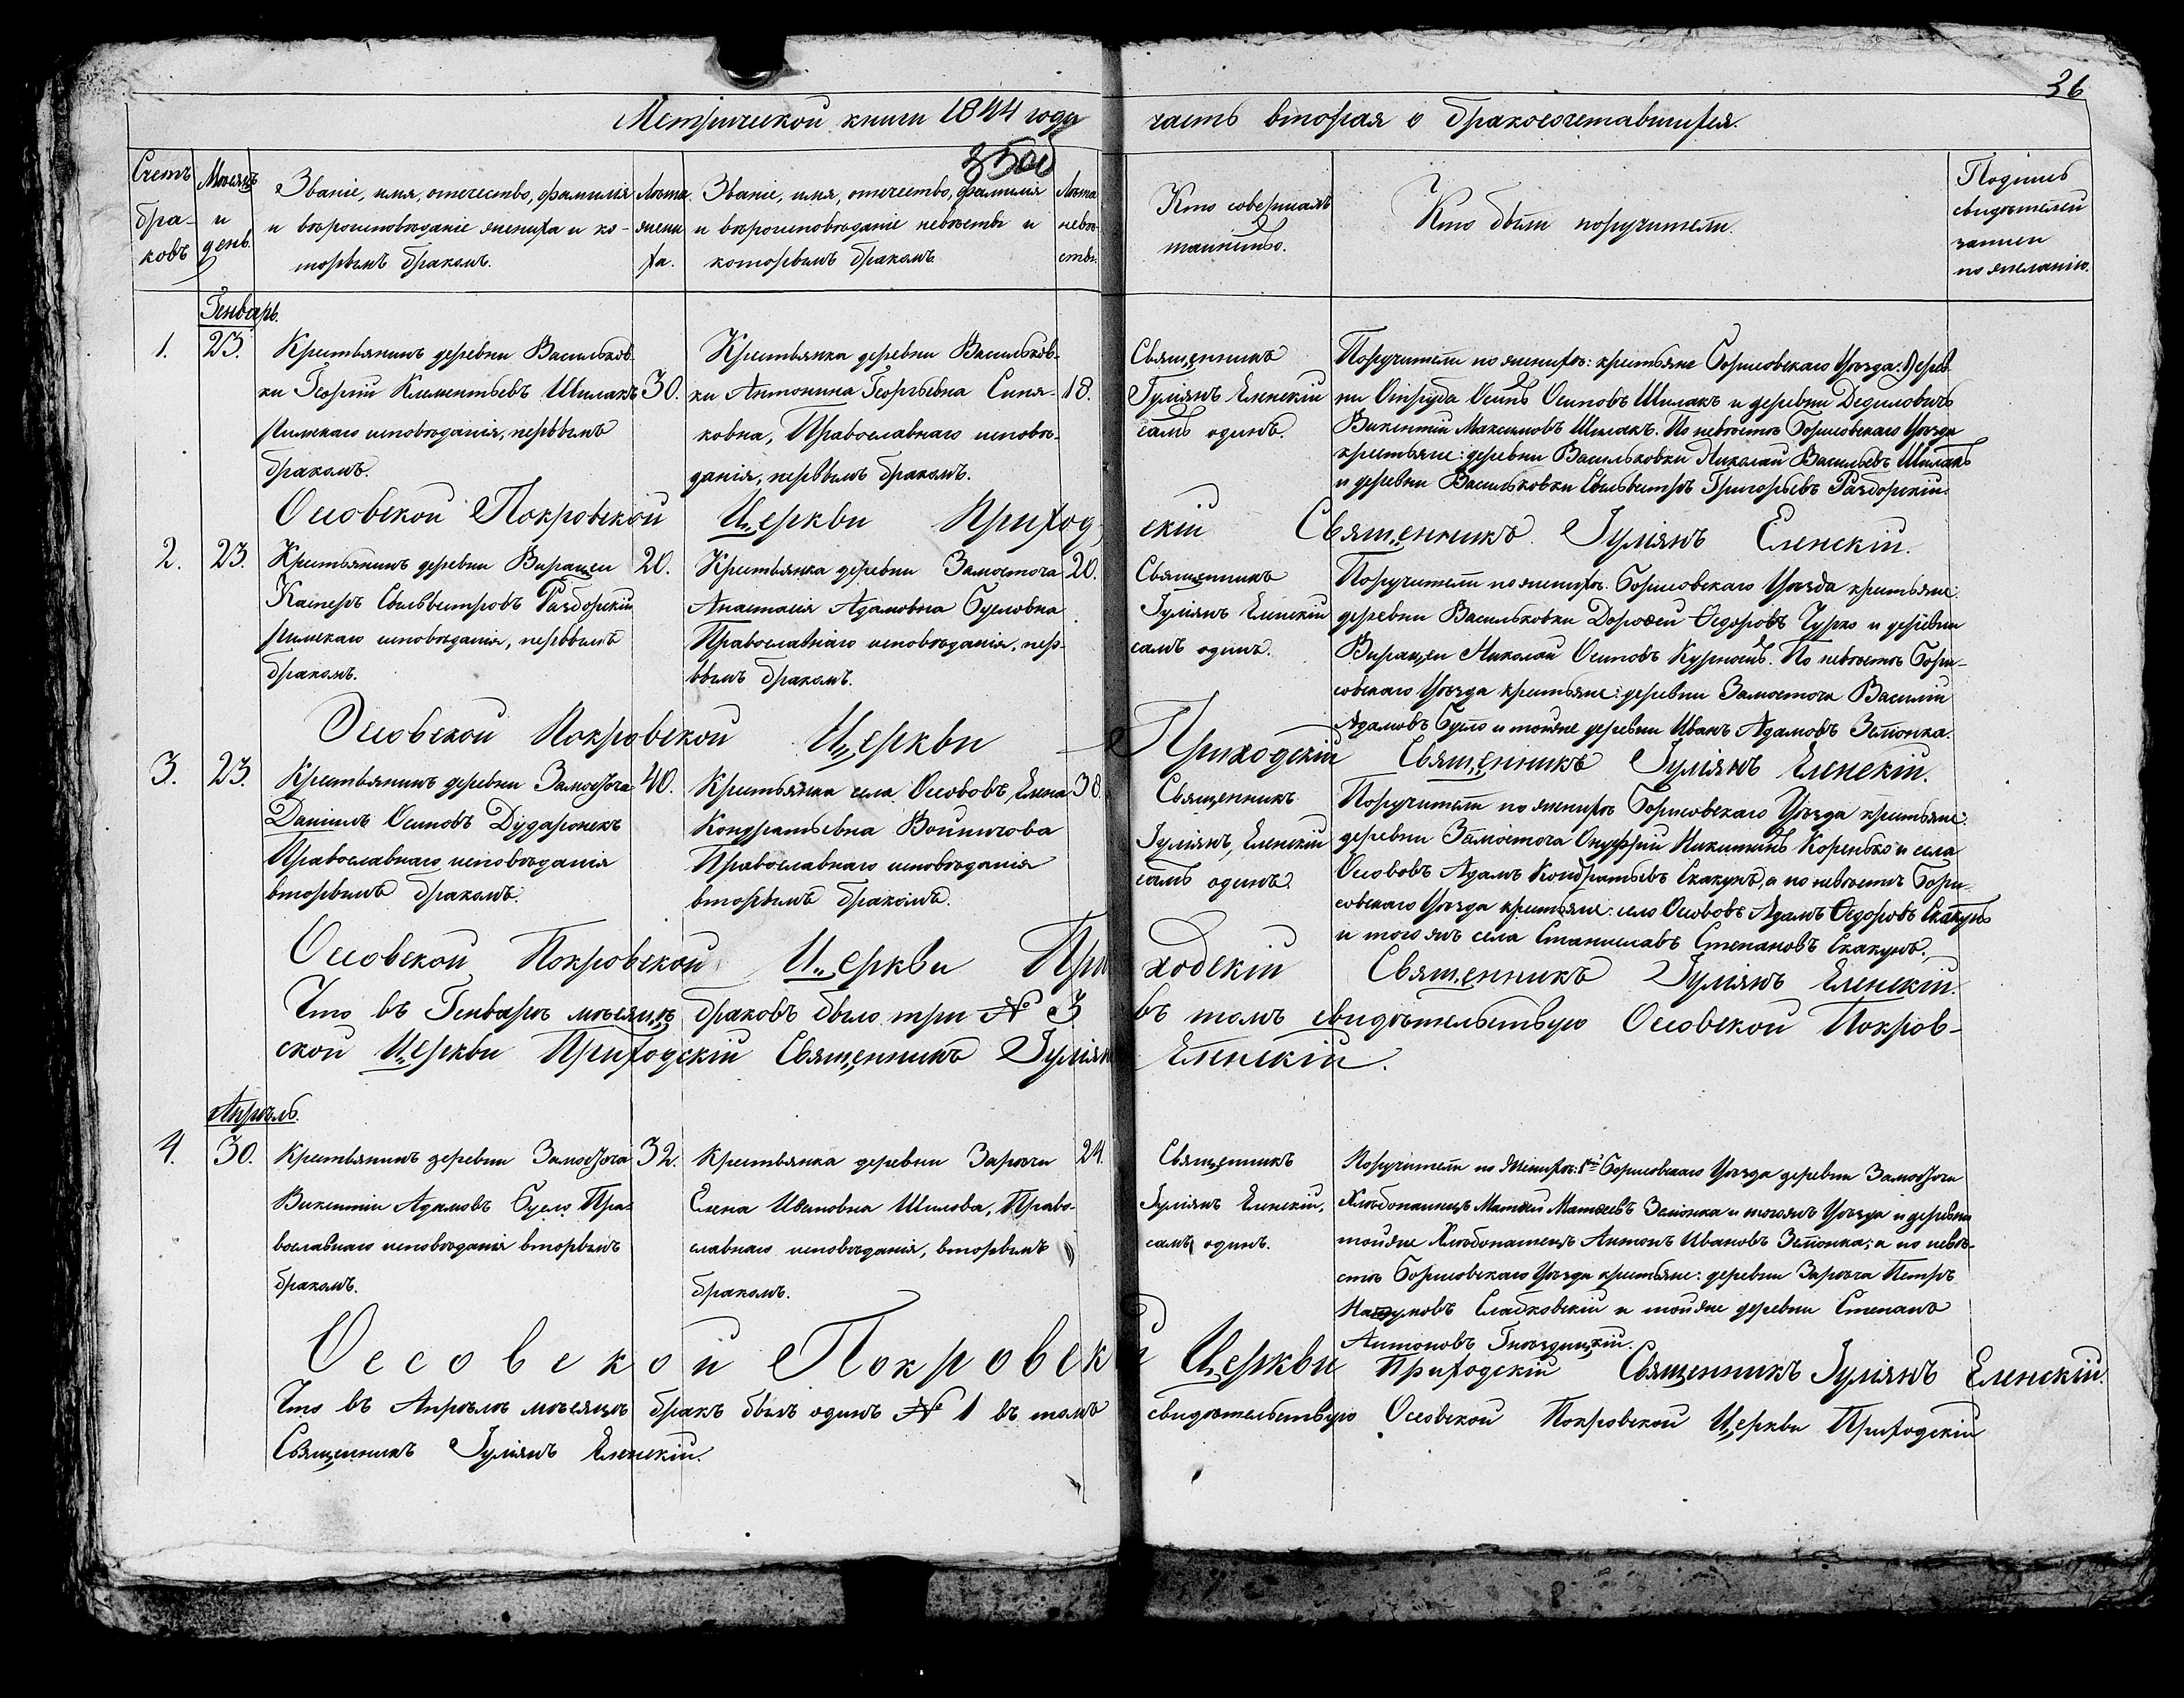 36
Метрической книги 1844 году часть вторая о бракосочетавшихся.
35об
Счетъ браковъ
Мѣсяцъ и день.
Званіе, имя, отечество, фамилія и вѣроисповѣданіе жениха и которымъ бракомъ.
Лѣта жениха.
Званіе, имя, отечество, фамилія и вѣроисповѣданіе невѣсты и которымъ бракомъ.
Лѣта невѣсты.
Кто совершалъ таинство.
Кто были поручители.
Подпись свидѣтелей записи по желанію.
Генварь.
1.
23.
Крестьянинъ деревни Васильков-
ки Георгій Климентьевъ Шилакъ
римскаго исповѣданія, первымъ
бракомъ.
30.
Крестьянка деревни Васильков-
ки Антонина Георгьевна Синя-
ковна, Православнаго исповѣ-
данія, первымъ бракомъ.
18.
Священникъ
Гуліянъ Еленскій
самъ одинъ.
Поручители по женихѣ: крестьяне Борисовскаго Уѣзда: Дерев-
ни Осипъ Осиповъ Шилакъ и деревни Дедиловичъ
Викентій Максимовъ Шилакъ. По невѣстѣ Борисовскаго Уѣзда
крестьяне: деревни Васильковки Николай Васильевъ Шилакъ
и деревни Васильковки Сильвестръ Григорьевъ Раздорскій.
Осовской Покровской Церкви Приходскій Священникъ Гуліянъ Еленскій.
2.
23.
Крестьянинъ деревни Вирацеи
Касперъ Сильвестровъ Раздорскій
римскаго исповѣданія, первымъ
бракомъ.
20.
Крестьянка деревни Замосточа
Анастасія Адамовна Бусловна
Православнаго исповѣданія, пер-
вымъ бракомъ.
20.
Священникъ
Гуліянъ Еленскій
самъ одинъ.
Поручители по женихѣ Борисовскаго Уѣзда крестьяне:
деревни Васильковки Дорофей Ѳедоровъ Чурко и деревни
Вирацеи Николай Осиповъ Курношъ. По невѣстѣ Бори-
совскаго Уѣзда крестьяне: деревни Замосточи Василій
Адамовъ Бусло и тойже деревни Иванъ Адамовъ Зелionка.
Осовской Покровской Церкви Приходскій Священникъ Гуліянъ Еленскій.
3.
23.
Крестьянинъ деревни Замосточа
Даніилъ Осиповъ Дударонекъ
Православнаго исповѣданія
вторымъ бракомъ.
40.
Крестьянка села Осововъ, Елена
Кондратьевна Войничова
Православнаго исповѣданія
вторымъ бракомъ.
38.
Священникъ
Гуліянъ, Еленскій
самъ одинъ.
Поручители по женихѣ Борисовскаго Уѣзда крестьяне:
деревни Замосточа Онуфрій Никитинъ Коренько и села
Осововъ Адамъ Кондратьевъ Скакунъ, а по невѣстѣ Бори-
совскаго Уѣзда крестьяне: село Осововъ Адамъ Ѳедоровъ Скакунъ
и тогожъ села Станиславъ Степановъ Скакунъ.
Осовской Покровской Церкви Приходскій Священникъ Гуліянъ Еленскій.
Что въ Генварѣ мѣсяцѣ браковъ было три № 3 въ томъ свидѣтельствую Осовской Покров-
ской Церкви Приходскій Священникъ Гуліянъ Еленскій.
Апрѣль.
4.
30.
Крестьянинъ деревни Замосточа
Викентій Адамовъ Бусло Пра-
вославнаго исповѣданія вторымъ
бракомъ.
32.
Крестьянка деревни Зарѣчи
Елена Ивановна Шилова, Право-
славнаго исповѣданія, вторымъ
бракомъ.
24.
Священникъ
Гуліянъ Еленскій,
самъ одинъ.
Поручители по женихѣ: Борисовскаго Уѣзда деревни Замосточи
Хлѣбопашецъ Матѳей Матѳеевъ Зелionка и тогожъ Уѣзда и деревни
тойже Хлѣбопашецъ Антонъ Ивановъ Зелionка; а по невѣ-
стѣ Борисовскаго Уѣзда крестьяне: деревни Зарѣча Петръ
Слабковскій и тойже деревни Степанъ
Антоновъ Гнѣздицкій.
Осовской Покровской Церкви Приходскій Священникъ Гуліянъ Еленскій.
Что въ Апрѣлѣ мѣсяцѣ бракъ былъ одинъ № 1 въ томъ свидѣтельствую Осовской Покровской Церкви Приходскій
Священникъ Гуліянъ Еленскій.